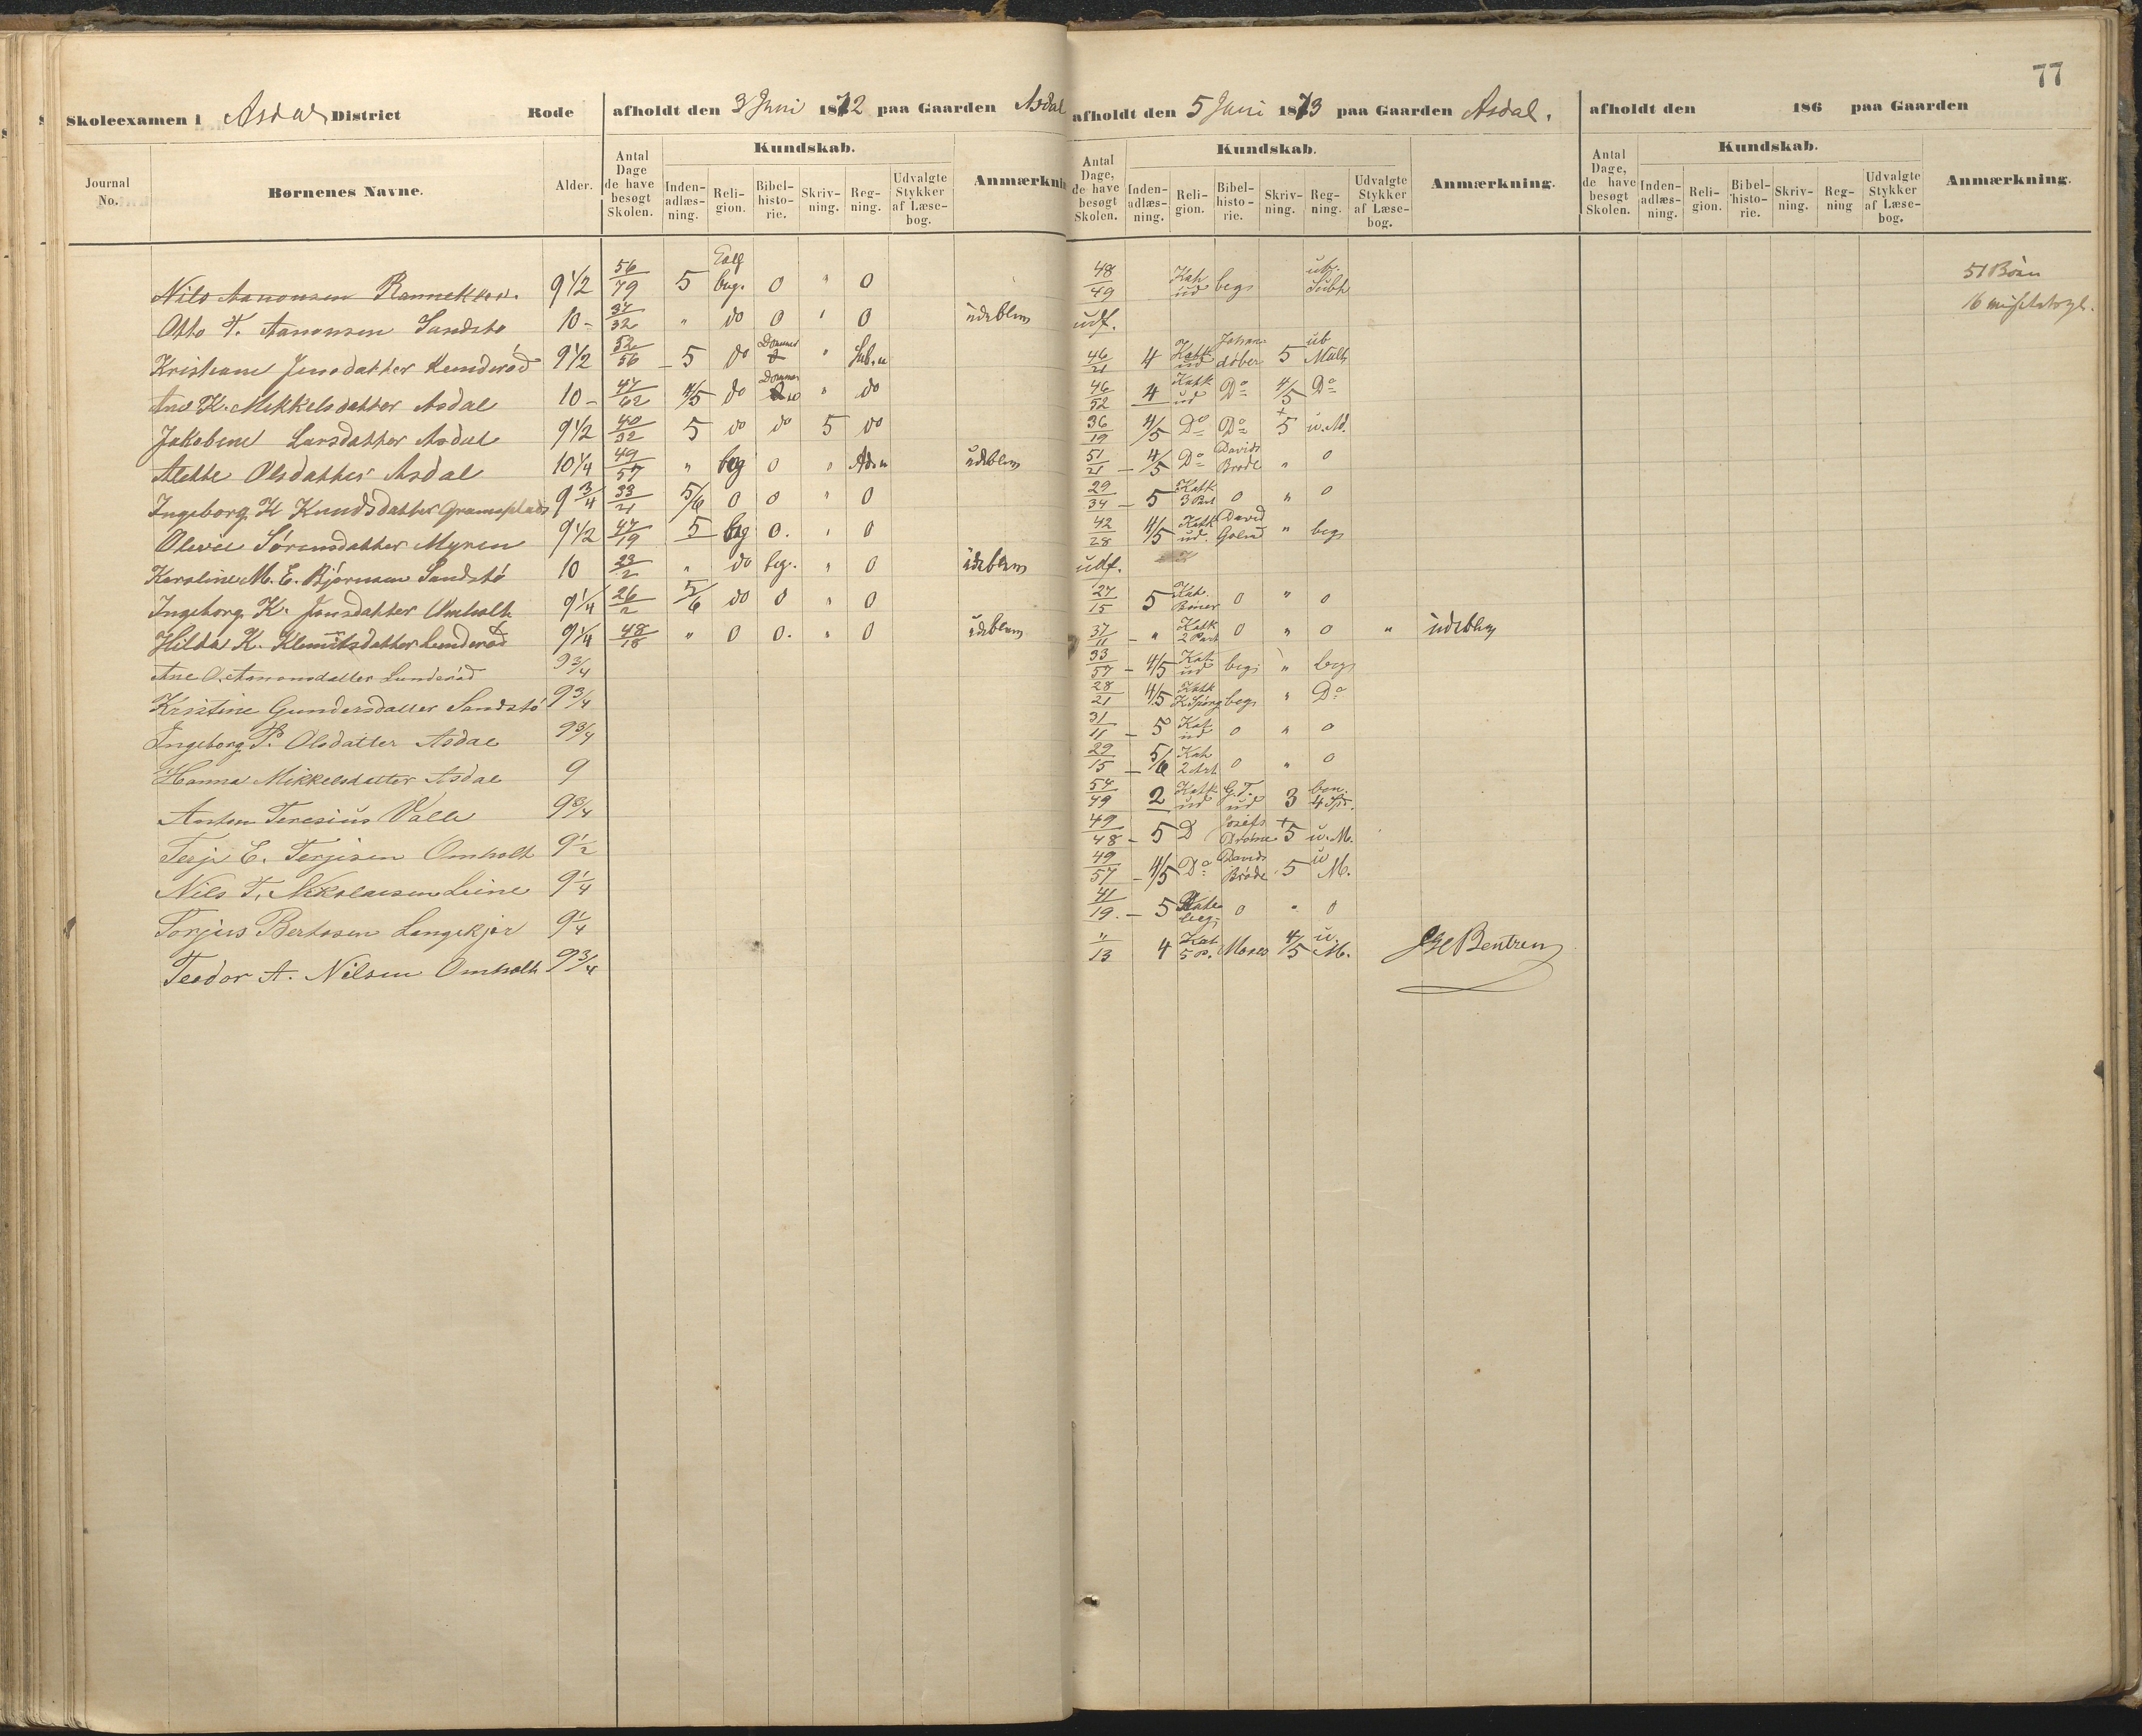 77
Skoleexamen i Asdal District Rode afholdt den 3 Juni 1872 paa Gaarden Asdal afholdt den 5 Juni 1873 paa Gaarden Asdal. afholdt den 186 paa Gaarden
Journal No. Børnenes Navne. Alder. Antal Dage de have besøgt Skolen. Kundskab. Inden-adlæs-ning. Reli-gion. Bibel-histo-rie. Skriv-ning. Reg-ning. Udvalgte Stykker af Læse-bog. Anmærkni
Antal Dage, de have besøgt Skolen. Kundskab. Inden-adlæs-ning. Reli-gion. Bibel-histo-rie. Skriv-ning. Reg-ning. Udvalgte Stykker af Læse-bog. Anmærkning.
Antal Dage, de have besøgt Skolen. Kundskab. Inden-adlæs-ning. Reli-gion. Bibel-histo-rie. Skriv-ning. Reg-ning Udvalgte Stykker af Læse-bog. Anmærkning.
Nils Aanonsen 9 1/2 56/79 5 beg. 0 " 0 48/49 Kat ud beg ub. Subt 51 Børn
Otto T. Aanonsen Sandstø 10 - 37/32 " do 0 " 0 udeblev udf. 16
Kristiane Jensdatter Lunderød 9 1/2 52/56 5 do Dommer " Sub. u 46/21 4 Katk ud Johan døber 5 ub Mult
Ane K. Mikkelsdatter Asdal 10 - 47/62 4/5 do Dommer " do 46/52 4 Katk ud Do 4/5 Do
Jakobine Larsdatter Asdal 9 1/2 40/32 5 do do 5 do 36/19 4/5 Do Do +5 u. M.
Alette Olsdatter Asdal 10 1/4 49/57 " beg 0 " Ad. u udeblev 51/21 4/5 Do Davids Brøde " 0
Ingeborg K Knudsdatter 9 3/4 33/21 5/6 0 0 " 0 29/34 5 Katk 3 Part 0 " 0
Olevie Sørensdatter Myren 9 1/2 47/19 5 beg 0. " 0 42/28 4/5 Katk ud. David " beg
Karoline M. E. Bjørnsen Sandstø 10 22/2 " do beg. " 0 udeblev udf.
Ingeborg K. Jensdatter Omholt 9 1/4 26/2 5/6 do 0 " 0 27/15 5 Kat. 0 " 0
Hilda K. Klemitsdatter Lunderød 9 1/4 48/18 " 0 0. " 0 udeblev 37/11 " Katk 2 Part 0 " 0 " udeblev
Ane O. Aanonsdatter Lunderød 9 3/4 33/57 4/5 Kat ud beg. " beg
Kristine Gundersdatter Sandstø 9 3/4 28/21 4/5 Katk beg " Do
Ingeborg T. Olsdatter Asdal 9 3/4 31/11 5 Kat ud 0 " 0
Hanna Mikkelsdatter Asdal 9 29/15 5/6 Kat 2 Art 0 " 0
Anton Teresius Valle 9 3/4 54/49 2 Katk ud G. T. ud 3 ben. 4 Sp.
Terje E. Terjesen Omholt 9 1/2 49/48 5 D Josefs Drømme +5 u. M.
Nils T. Nikolaisen Leine 9 1/4 49/57 4/5 Do Davids Brøde 5 u M.
Torjus Bertosen Langekjær 9 1/4 41/19 5 Kate beg 0 " 0
Teodor A. Nilsen Omholt 9 3/4 "/13 4 Kat 5 P. Moses 4/5 u M. Bentzen